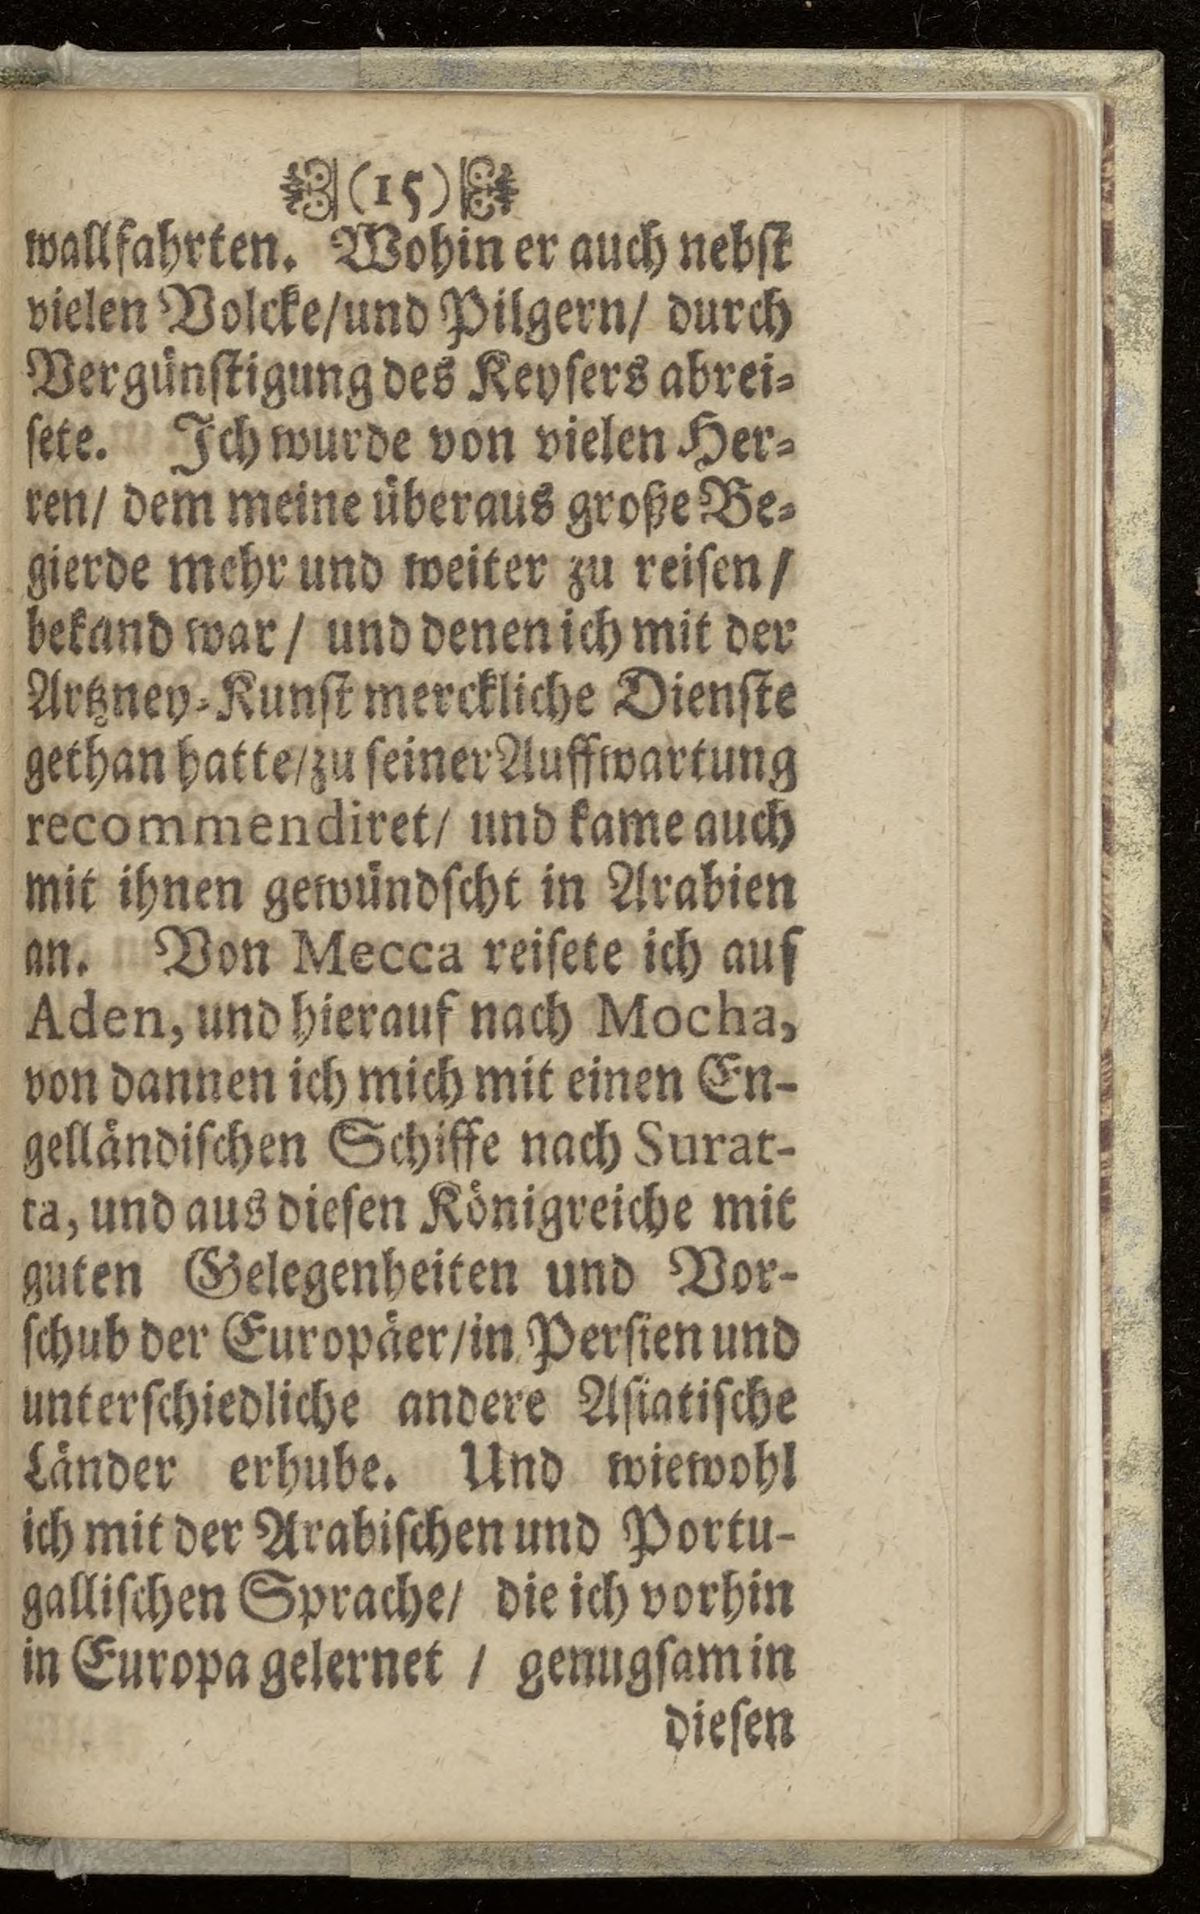 (15)
wallfahrten. Wohin er auch nebſt
vielen Volcke/und Pilgern/ durch
Vergünſtigung des Keyſers abrei-
ſete. Ich wurde von vielen Her-
ren/ dem meine überaus große Be-
gierde mehr und weiter zu reiſen/
bekand war/ und denen ich mit der
Artzney-Kunſt merckliche Dienſte
gethan hatte/zu ſeiner Auffwartung
recommendiret/ und kame auch
mit ihnen gewündſcht in Arabien
an. Von Mecca reiſete ich auf
Aden, und hierauf nach Mocha,
von dannen ich mich mit einen En-
gelländiſchen Schiffe nach Surat-
ta, und aus dieſen Königreiche mit
guten Gelegenheiten und Vor-
ſchub der Europäer/in Perſien und
unterſchiedliche andere Aſiatiſche
Länder erhube. Und wiewohl
ich mit der Arabiſchen und Portu-
galliſchen Sprache/ die ich vorhin
in Europa gelernet / genugſam in
dieſen